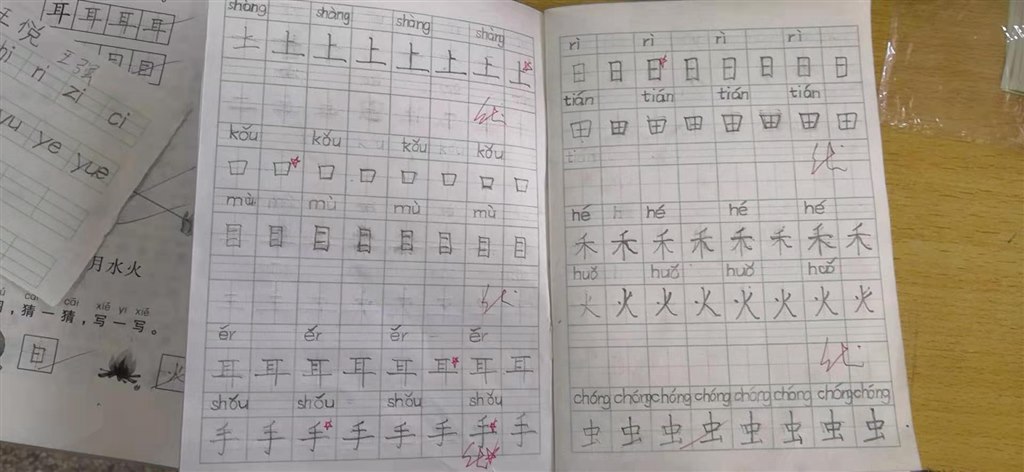 耳 耳 耳 耳
悦
日 日
ri
zi ci
yu ye yue
月水火
cāi cāi xiě yi xiě
猜一猜，写一写。
日
火
shàng shàng shàng shàng
上 上 上 上 上 上 上 上
kǒu kǒu kǒu kǒu
口 口 口 口 口 口 口 口
mù mù mù mù
目 目 目 目 目 目 目 目
ěr ěr ěr ěr
耳 耳 耳 耳 耳 耳 耳 耳
shǒu shǒu shǒu shǒu
手 手 手 手 手 手 手 手
rì rì rì rì
日 日 日 日 日 日 日 日
tián tián tián tián
田 田 田 田 田 田 田 田
hé hé hé hé
禾 禾 禾 禾 禾 禾 禾 禾
huǒ huǒ huǒ huǒ
火 火 火 火 火 火 火 火
chóng chóng chóng chóng chóng chóng chóng
虫 虫 虫 虫 虫 虫 虫 虫